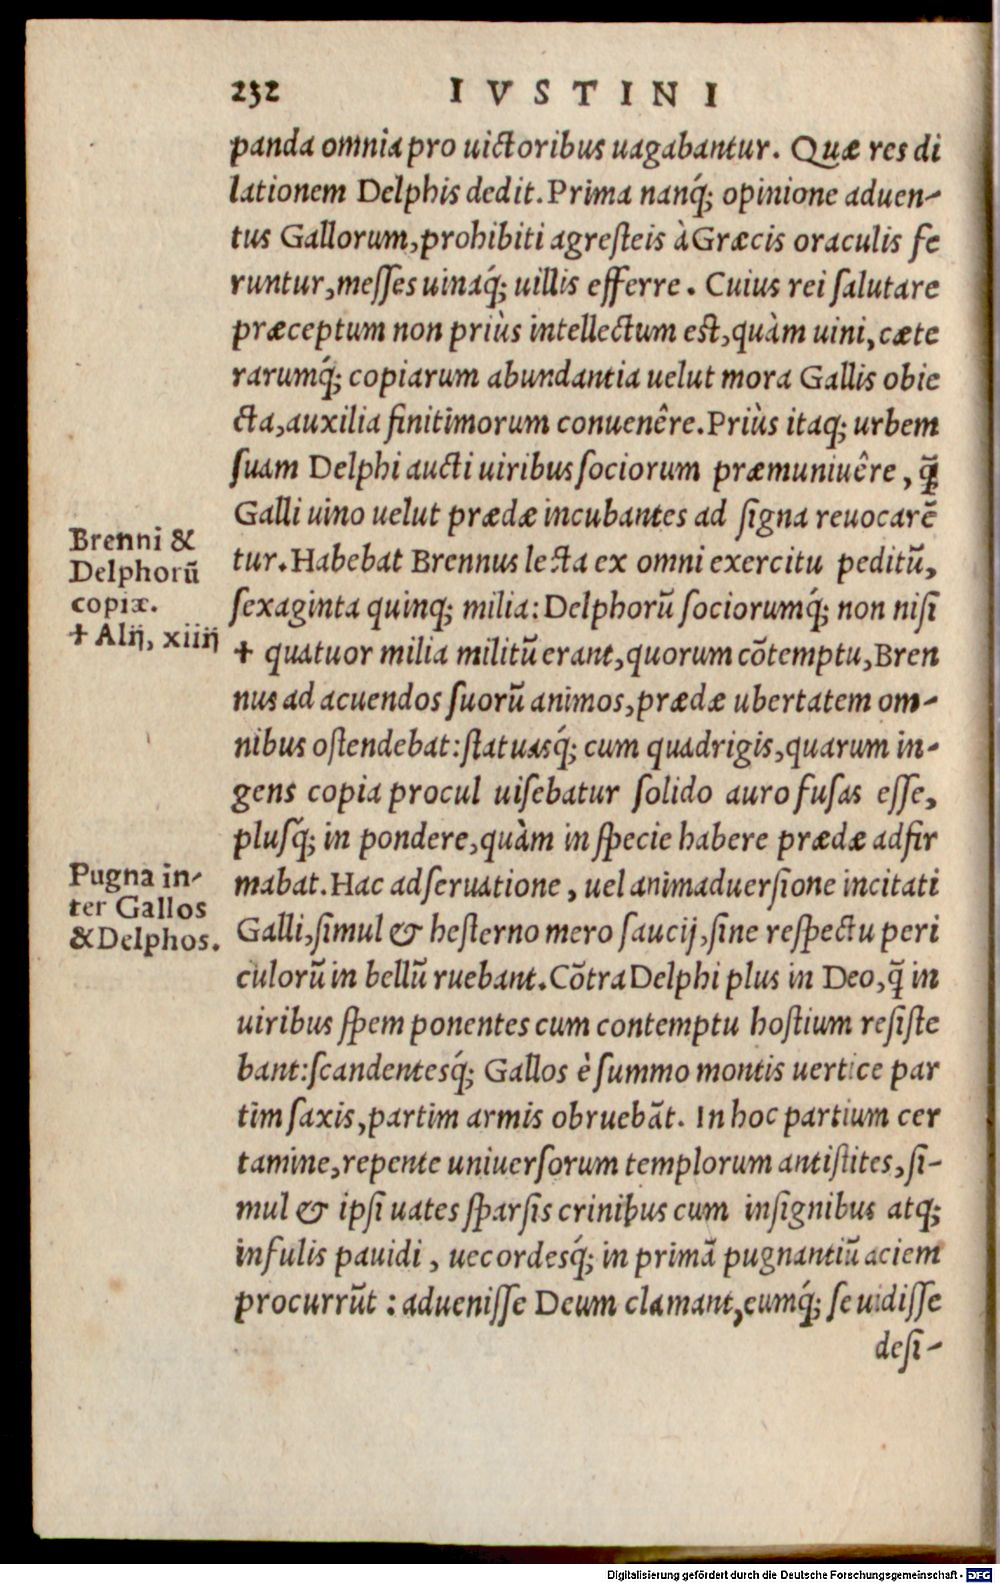 232 IVSTINI
panda omnia pro uictoribus uagabantur. Quæ res di
lationem Delphis dedit. Prima nanq́; opinione aduen-
tus Gallorum, prohibiti agresteis à Græcis oraculis fe
runtur, messes uinaq́; uillis efferre. Cuius rei salutare
præceptum non priùs intellectum est, quàm uini, cæte
rarumq́; copiarum abundantia uelut mora Gallis obie
cta, auxilia finitimorum conuenêre. Priùs itaq; urbem
suam Delphi aucti uiribus sociorum præmuniuêre, q̃
Galli uino uelut prædæ incubantes ad signa reuocarẽ
tur. Habebat Brennus lecta ex omni exercitu peditũ,
sexaginta quinq; milia: Delphorũ sociorumq́; non nisi
✝ quatuor milia militũ erant, quorum cõtemptu, Bren
nus ad acuendos suorũ animos, prædæ ubertatem om-
nibus ostendebat: statuasq́; cum quadrigis, quarum in-
gens copia procul uisebatur solido auro fusas esse,
plusq́; in pondere, quàm in specie habere prædæ adfir
mabat. Hac adseruatione, uel animaduersione incitati
Galli, simul & hesterno mero saucij, sine respectu peri
culorũ in bellũ ruebant. Cõtra Delphi plus in Deo, q̃ in
uiribus spem ponentes cum contemptu hostium resiste
bant: scandentesq́; Gallos è summo montis uertice par
tim saxis, partim armis obruebãt. In hoc partium cer
tamine, repente uniuersorum templorum antistites, si-
mul & ipsi uates sparsis crinibus cum insignibus atq;
infulis pauidi, uecordesq́; in primã pugnantiũ aciem
procurrũt: aduenisse Deum clamant, eumq́; se uidisse
desi-
Brenni &
Delphorũ
copiæ.
✝ Alij, xiiij
Pugna in-
ter Gallos
& Delphos.
Digitalisierung gefördert durch die Deutsche Forschungsgemeinschaft - DFG